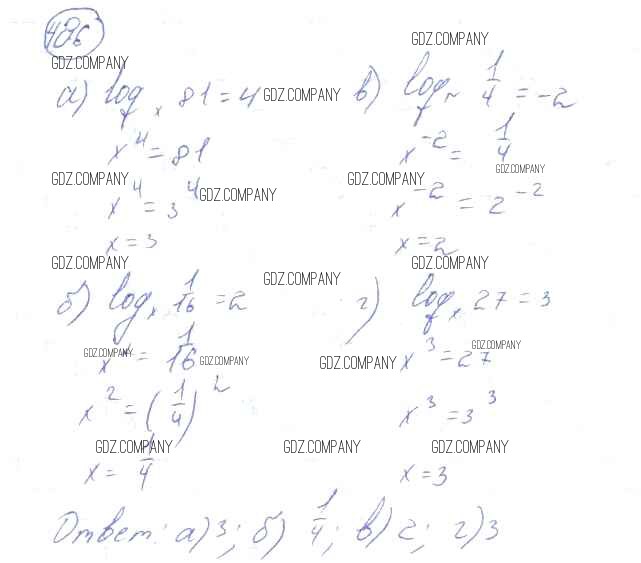 486
GDZ.COMPANY
GDZ.COMPANY
а) log_x 81 = 4
GDZ.COMPANY
x^4 = 81
GDZ.COMPANY
x^4 = 3^4
GDZ.COMPANY
x = 3
GDZ.COMPANY
б) log_x 1/16 = 2
GDZ.COMPANY
GDZ.COMPANY
= 1/16
GDZ.COMPANY
x^2 = (1/4)^2
GDZ.COMPANY
x = 1/4
GDZ.COMPANY
в) log_x 1/4 = -2
x^-2 = 1/4
GDZ.COMPANY
GDZ.COMPANY
x^-2 = 2^-2
x = 2
GDZ.COMPANY
г) log_x 27 = 3
GDZ.COMPANY
GDZ.COMPANY
x^3 = 27
x^3 = 3^3
GDZ.COMPANY
x = 3
Ответ: а) 3; б) 1/4; в) 2; г) 3